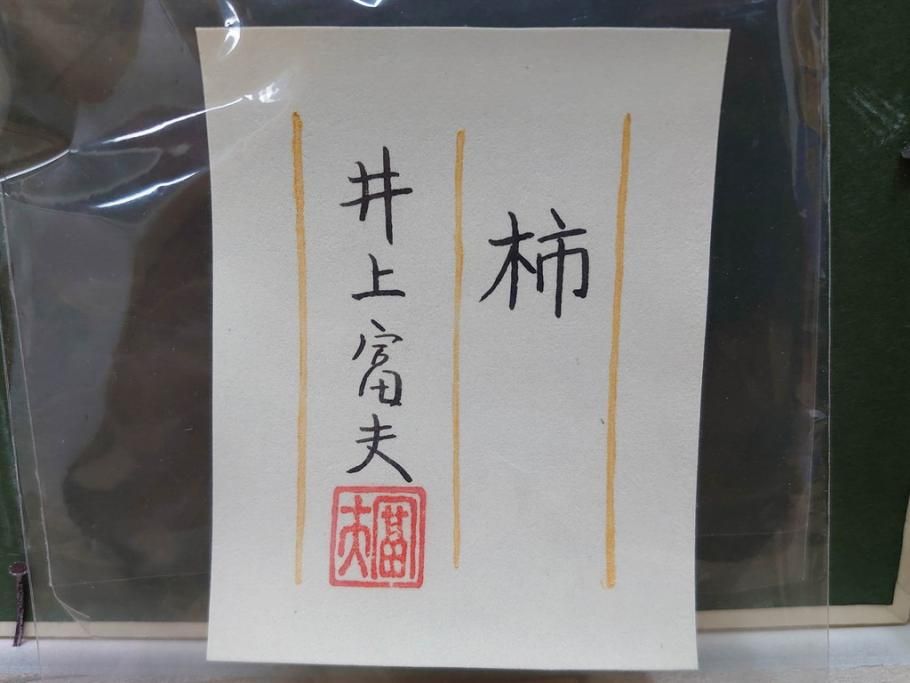 柿
井上富夫
富夫